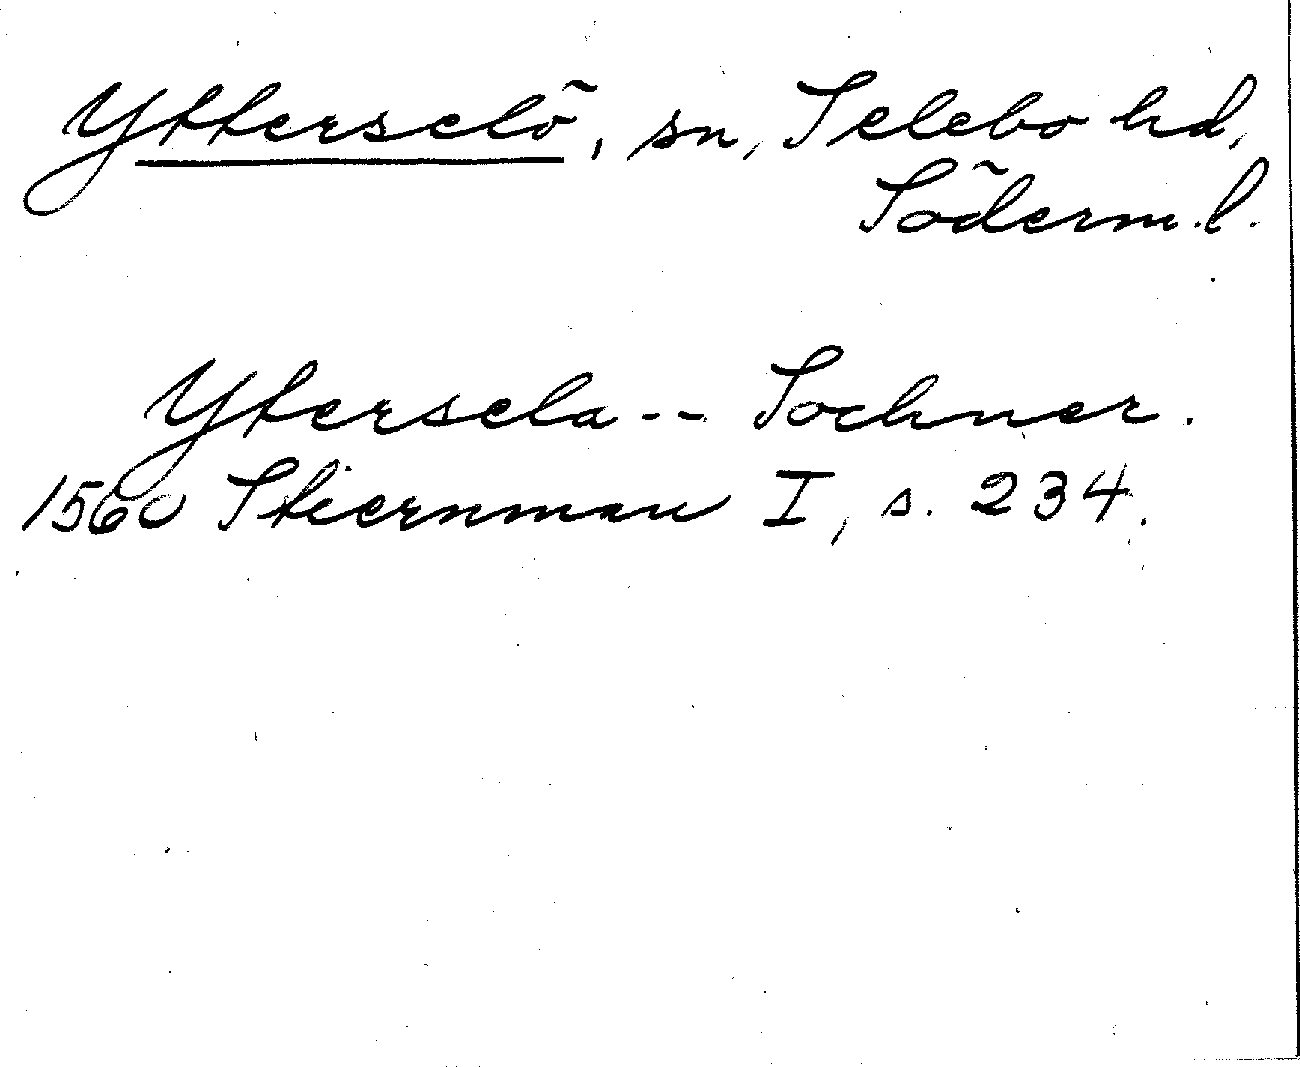 Ytterselö, sn, Selebo hd,
Söderm.l.
Ytersela -- Sochner.
1560 Stiernman I, s. 234.